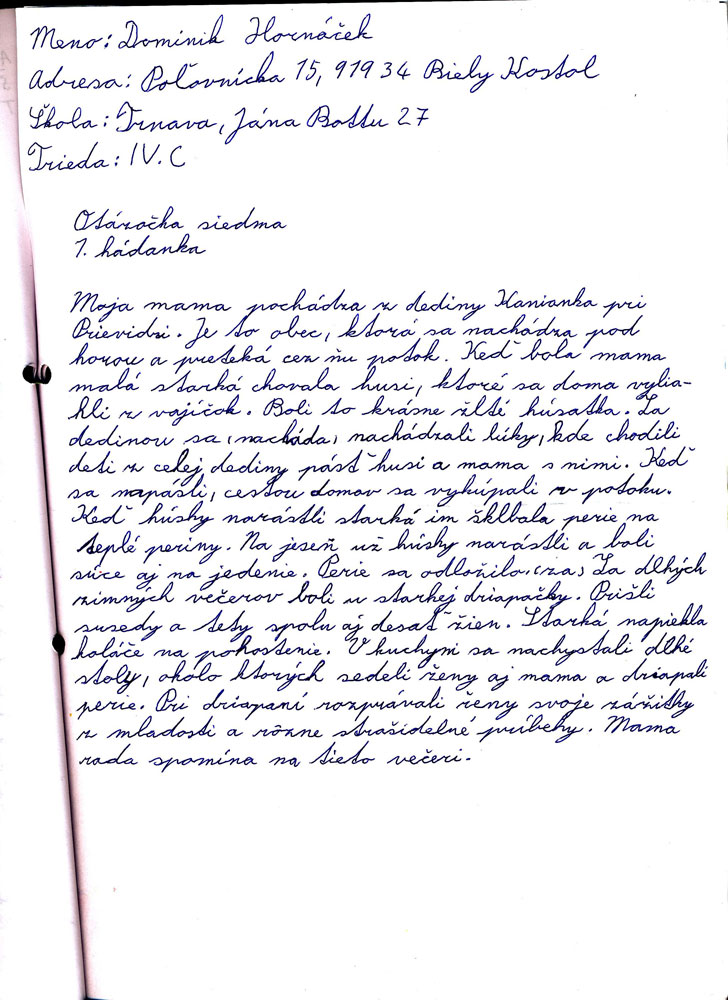 Meno: Dominik Hornáček
Adresa: Poľovnícka 15, 919 34 Biely Kostol
Škola: Trnava, Jána Bottu 27
Trieda: IV. C
Otázočka siedma
1. hádanka
Moja mama pochádza z dediny Kanianka pri
Prievidzi. Je to obec, ktorá sa nachádza pod
horou a preteká cez ňu potok. Keď bola mama
malá starká chovala husi, ktoré sa doma vylia-
hli z vajíčok. Boli to krásne žlté húsatka. Za
dedinou sa (nacháda) nachádzali lúky, kde chodili
deti z celej dediny pásť husi a mama s nimi. Keď
sa napásli, cestou domov sa vykúpali v potoku.
Keď húsky narástli starká im šklbala perie na
teplé periny. Na jeseň už húsky narástli a boli
súce aj na jedenie. Perie sa odložilo. (za) Za dlhých
zimných večerov boli u starkej driapačky. Prišli
susedy a tety spolu aj desať žien. Starká napiekla
koláče na pohostenie. V kuchyni sa nachystali dlhé
stoly, okolo ktorých sedeli ženy aj mama a driapali
perie. Pri driapaní rozprávali ženy svoje zážitky
z mladosti a rôzne strašidelné príbehy. Mama
rada spomína na tieto večeri.